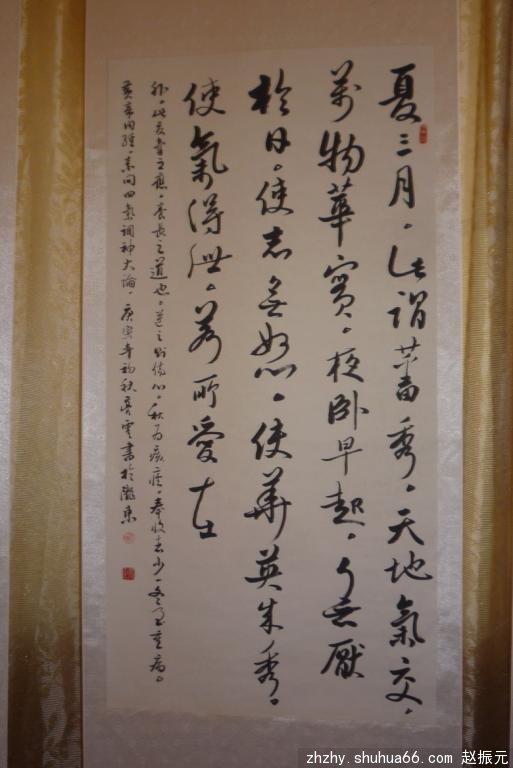 夏三月。此謂蕃秀。天地氣交。
萬物華實。夜卧早起。無厭
於日。使志無怒。使華英成秀。
使氣得泄。若所愛在
外。此夏氣之應。養長之道也。逆之則傷心。秋为痎瘧。奉收者少。冬至重病。
黄帝内經。素问四氣调神大論。庚寅年初秋
zhzhy.shuhua66.com 赵振元